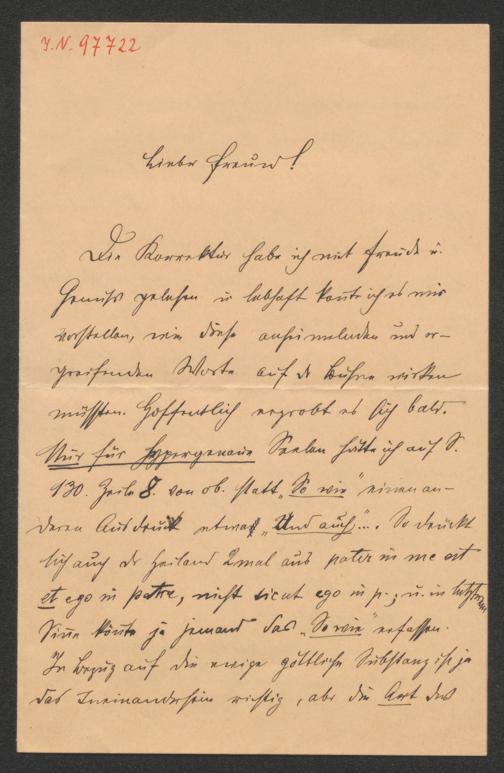 I.N. 97722
Lieber Freund!
Die Korrektur habe ich mit Freude u.
Genuß gelesen u lebhaft konnte ich es mir
vorstellen, wie diese anheimelnden und er-
greifenden Worte auf der Bühne wirken
müssten. Hoffentlich erprobt es sich bald.
Nur für hypergenaue Seelen hätte ich auf S.
130. Zeile 8. von ob. statt „So wie" einen an-
deren Ausdruck etwa „Und auch"... So drückt
sich auch der Heiland 2mal aus pater in me est
et ego in patre, nicht sicut ego in p.; u. in letzterem
Sinne könnte ja jemand das „So wie" erfassen.
In Bezug auf die ewige göttliche Substanz ist ja
das Ineinandersein richtig, aber die Art des